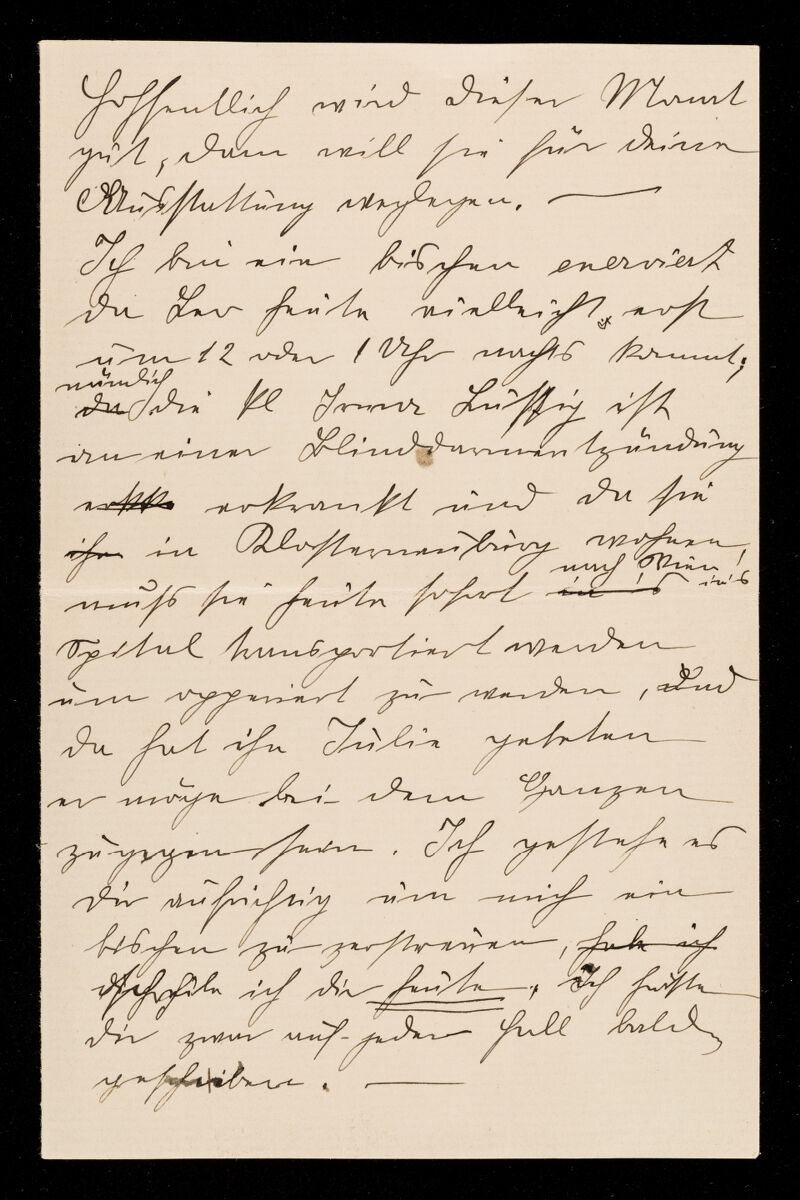 Hoffentlich wird dieser Monat
gut, dann will sie für deine
Ausstattung weglegen. —
Ich bin ein bischen enerviert
da Leo heute vielleicht erst
um 12 oder 1 Uhr nachts kommt;
nämlich
da die kl Irma Lustig ist
an einer Blinddarmentzündung
erkrankt und da sie
ihr in Klosterneuburg wohnen,
nach Wien ins
muss sie heute sofort in's
Spital transportiert werden
um opperiert zu werden, und
da hat ihn Julie gebeten
er möge bei dem Ganzen
zugegen sein. Ich gestehe es
dir aufrichtig um mich ein
bischen zu zerstreuen, habe ich
schreibe ich dir heute. Ich hätte
dir zwar auf jeden Fall bald
geschrieben. —